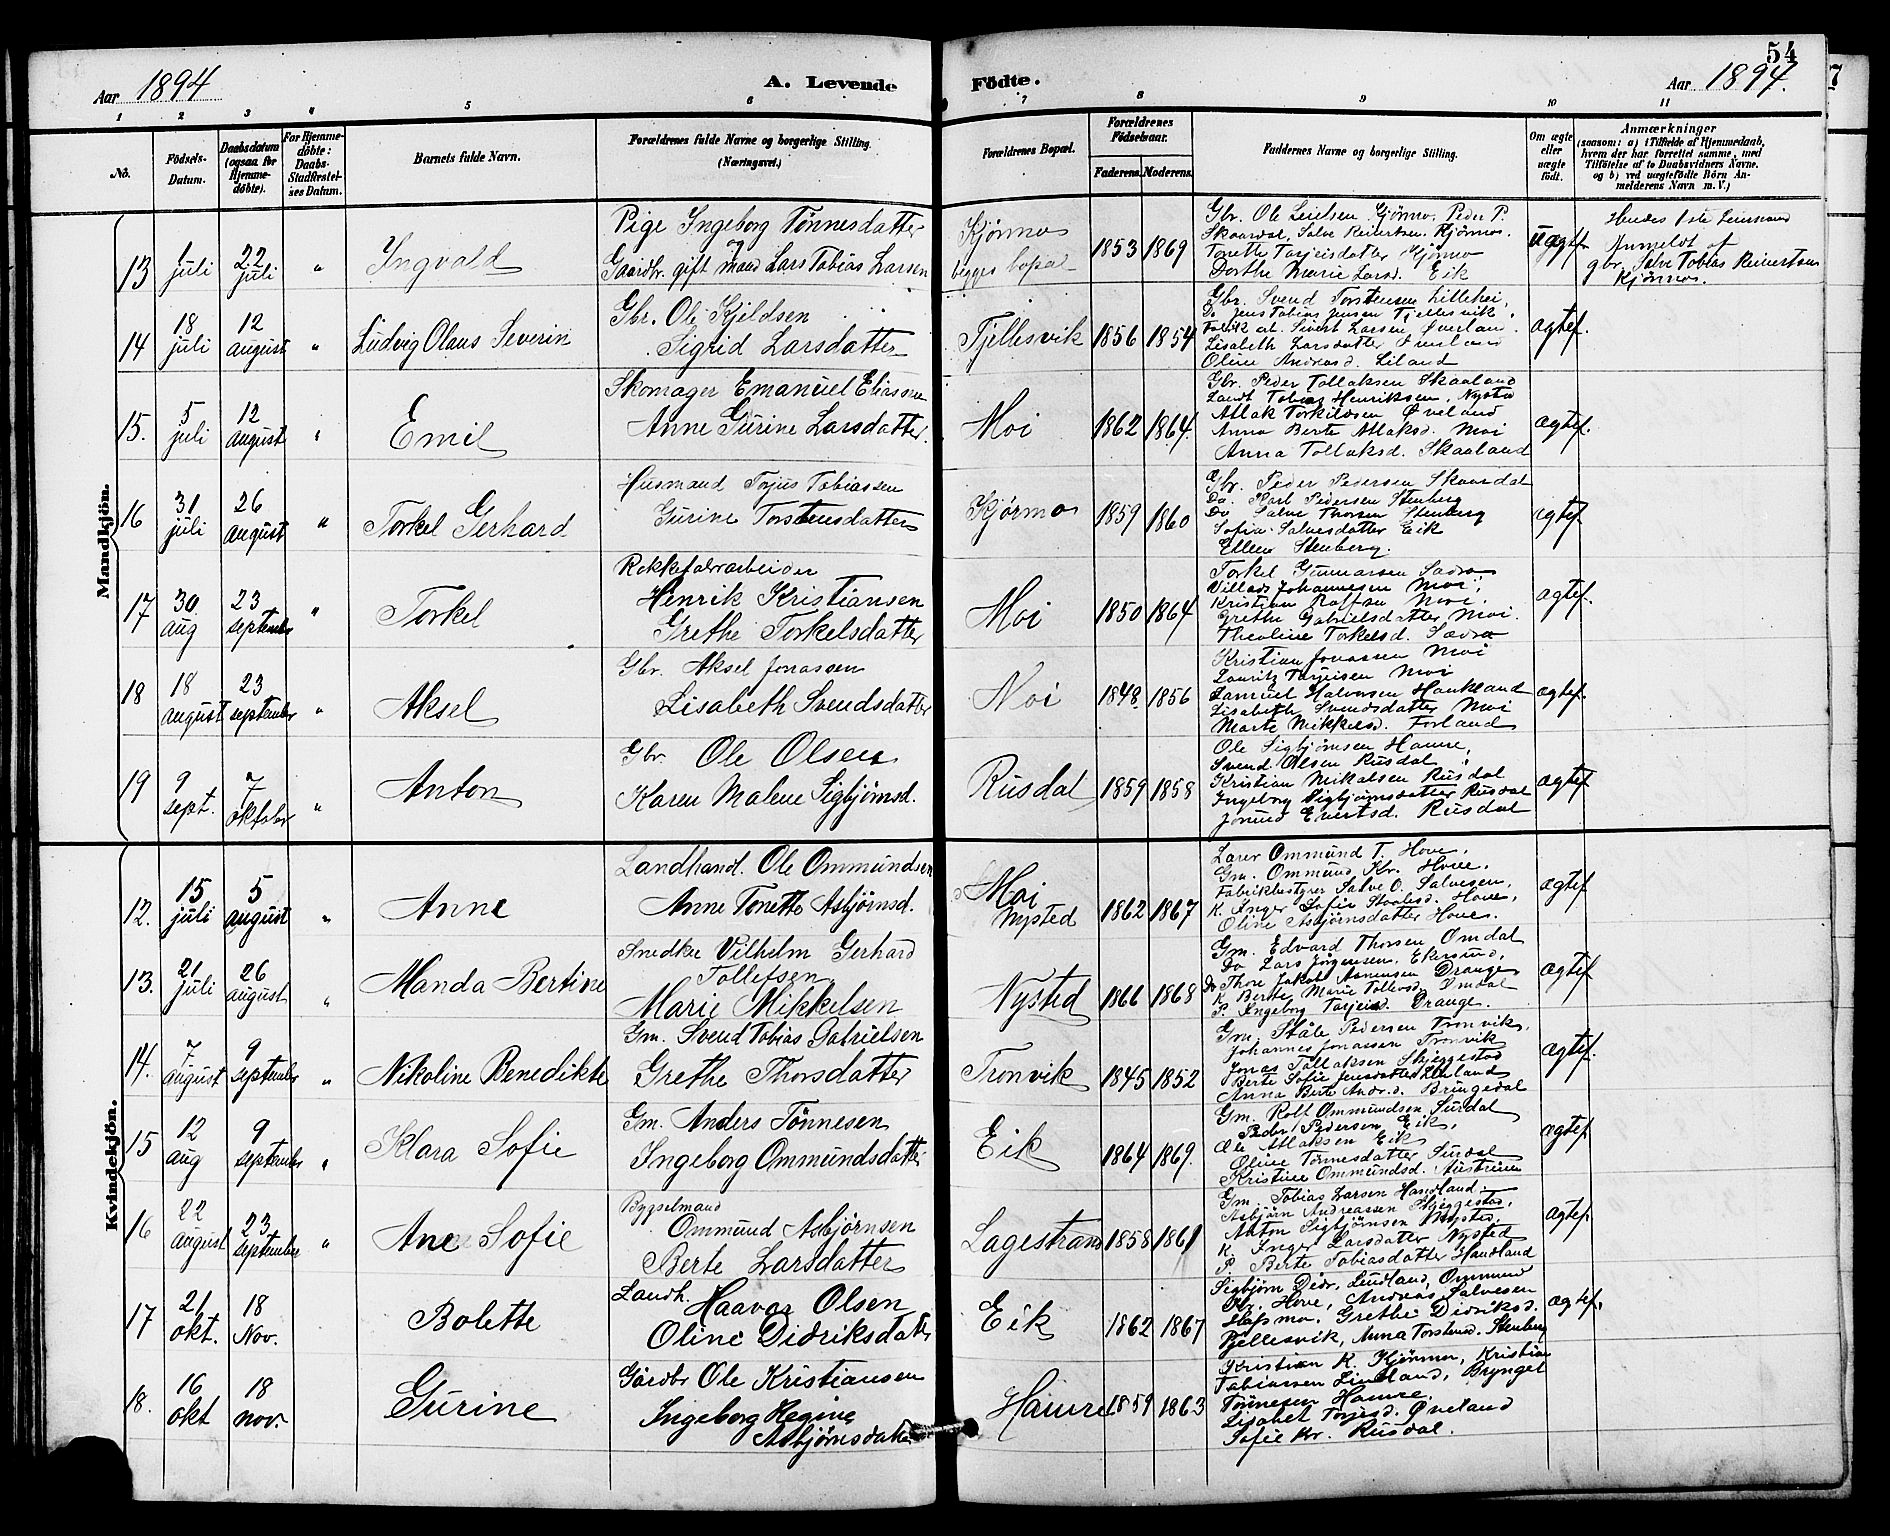 54
Aar 1894
A. Levende Födte.
Aar 1894.
1 2 3 4 5 6 7 8 9 10 11
No.
Födsels-Datum.
Daabsdatum (ogsaa for Hjemmedöbte).
For Hjemmedöbte: Daabs-Stadfæstelses Datum.
Barnets fulde Navn.
Forældrenes fulde Navne og borgerlige Stilling. (Næringsvei.)
Forældrenes Bopæl.
Forældrenes Födselsaar.
Faderens. Moderens.
Faddernes Navne og borgerlige Stilling.
Om ægte eller uægte födt.
Anmærkninger
(saasom: a) i Tilfælde af Hjemmedaab, hvem der har forrettet samme, med Tilföielse af to Daabsvidners Navne. og b) ved uægtefödte Börn Anmelderens Navn m. V.)
Mandkjön.
13 1 juli 22 juli " Ingvald
Pige Ingeborg Tønnesdatter
Gaardbr. gift mand Lars Tobias Larsen
Kjørmo begges bopæl 1853 1869
Gbr. Ole Leielsen Kjørmo. Peder P.
Skaardal, Salve Reinertsen. Kjørmo.
Tonette Tarjeisdatter Kjørmo
Dorthe Marie Larsd. Eik
Uægtef.
Hendes 1ste Leiermaal
Anmeldt af
gbr. Salve Tobias Reinertsen
Kjørmo.
14 18 juli 12 august " Ludvig Olaus Severin
Gbr. Ole Kjeldsen
Sigrid Larsdatter
Fjellesvik 1856 1854
Gbr. Svend Torstensen Lillehei,
Do Jens Tobias Jensen Fjellesvik,
Fabrik arb. Sivert Larsen Øverland.
Lisabeth Larsdatter Øverland
Oline Andreasd. Liland
ægtef.
15. 5 juli 12 august " Emil
Skomager Emanuel Eliassen
Anne Gurine Larsdatter.
Moi 1862 1864.
Gbr. Peder Tollaksen Skaaland
Landh. Tobias Henriksen, Nysted
Atlak Torkildsen Øveland
Anna Berte Atlaksd. Moi
Anna Tollaksd. Skaaland
ægtef.
16 31 juli 26 august " Torkel Gerhard
Husmand Torjus Tobiassen
Gurine Torstensdatter
Kjørmo 1859 1860
Gbr. Peder Pedersen Skaardal
Do. Karl Pedersen Stenberg
Do Salve Thorsen Stenberg
Sofia Salvesdatter Eik
Ellen Stenberg.
ægtef
17 30 aug 23 september " Torkel
Rokkefabrarbeider
Henrik Kristiansen
Grethe Torkelsdatter
Moi 1850 1864
Torkel Gunnarsen Sadra
Villads Johannesen Moi,
Kristian Rolfsen Moi.
Grethe Gabrielsdatter Moi.
Theoline Torkelsd. Sadra
ægtef.
18 18 august 23 september " Aksel
Gbr. Aksel Jonassen
Lisabeth Svendsdatter
Noi 1848 1856
Kristian Jonassen Moi
Lauritz Tarjeisen Moi
Samuel Halvorsen Haukland
Lisabeth Svendsdatter Moi
Marte Mikkelsd. Forland
ægtef.
19 9 sept. 7 oktober " Anton
Gbr. Ole Olsen
Karen Malene Sigbjørnsd.
Rusdal 1859 1858
Ole Sigbjørnsen Hamre,
Svend Olsen Rusdal
Kristian Mikalsen Rusdal
Ingeborg Sigbjørnsdatter Rusdal
Jorund Evertsd. Rusdal
ægtef
Kvindekjön.
12. 15 juli 5 august " Anne
Landhand. Ole Ommundsen
Anne Tonette Asbjørnsd.
Moi Nysted 1862 1867
Lærer Ommund T. Hove,
Gm. Ommund Kr. Hove,
Fabrikbestyrer Salve O. Salvesen,
K. Inger Sofie Staalesd. Hove,
Oline Asbjørnsdatter Hove.
ægtef
13. 21 juli 26 august " Manda Bertine
Snedker Vilhelm Gerhard
Tollefsen
Marie Mikkelsen
Nysted 1866 1868
Gm. Edvard Thorsen Omdal
Do Lars Jørgensen, Ekersund,
Do Thore Jakob Asmunsen Drange
K. Berte Marie Tollevsd. Omdal
P. Ingeborg Tarjeisd. Drange.
ægtef
14. 7 august 9 september " Nikoline Benedikte
Gm. Svend Tobias Gabrielsen
Grethe Thorsdatter
Tronvik 1845 1852
Gm. Ståle Pedersen Tronvik,
Johannes Jonassen Tronvik
Jonas Tollaksen Skjeggestad
Berte Sofie Jensdatter
Anna Berte Andr.d. Bringedal
ægtef.
15 12 aug 9 september " Klara Sofie
Gm. Anders Tönnesen
Ingeborg Ommundsdatter
Eik 1864 1869.
Gm. Rolf Ommundsen Surdal
Peder Pedersen Eik,
Ole Atlaksen Eik
Oline Tønnesdatter Surdal
Kristine Ommundsd. Austrumn
ægtef.
16 22 august 23 september " Ane Sofie
Bygselmand
Ommund Asbjørnsen
Berte Larsdatter
Lagestrand 1858 1861
Gm. Tobias Larsen Handland.
Asbjørn Andreassen Skjeggestad,
Anton Sigbjørnsen Nysted.
K. Inger Larsdatter Nysted
P. Berte Tobiasdatter Handland
ægtef.
17 21 okt. 18 Nov. Bolette
Landh. Haavar Olsen
Oline Didriksdatter
Eik 1862 1867
Sigbjørn Didr. Lindland, Ommund
Kr. Hove, Andreas Salvesen
Hapmo. Grethe Didriksd.
Fjellesvik, Anna Torstensd. Stenberg
ægtef.
18. 16 okt 18 nov. Gurine
Gårdbr Ole Kristiansen
Ingeborg Regine
Asbjørnsdatter
Hamre 1859 1863
Kristian K. Kjørmo, Kristian
Tobiassen Lindland, Brynjel
Tønnesen Hamre.
Lisabet Torjesd. Øveland
Sofie Kr. Rusdal.